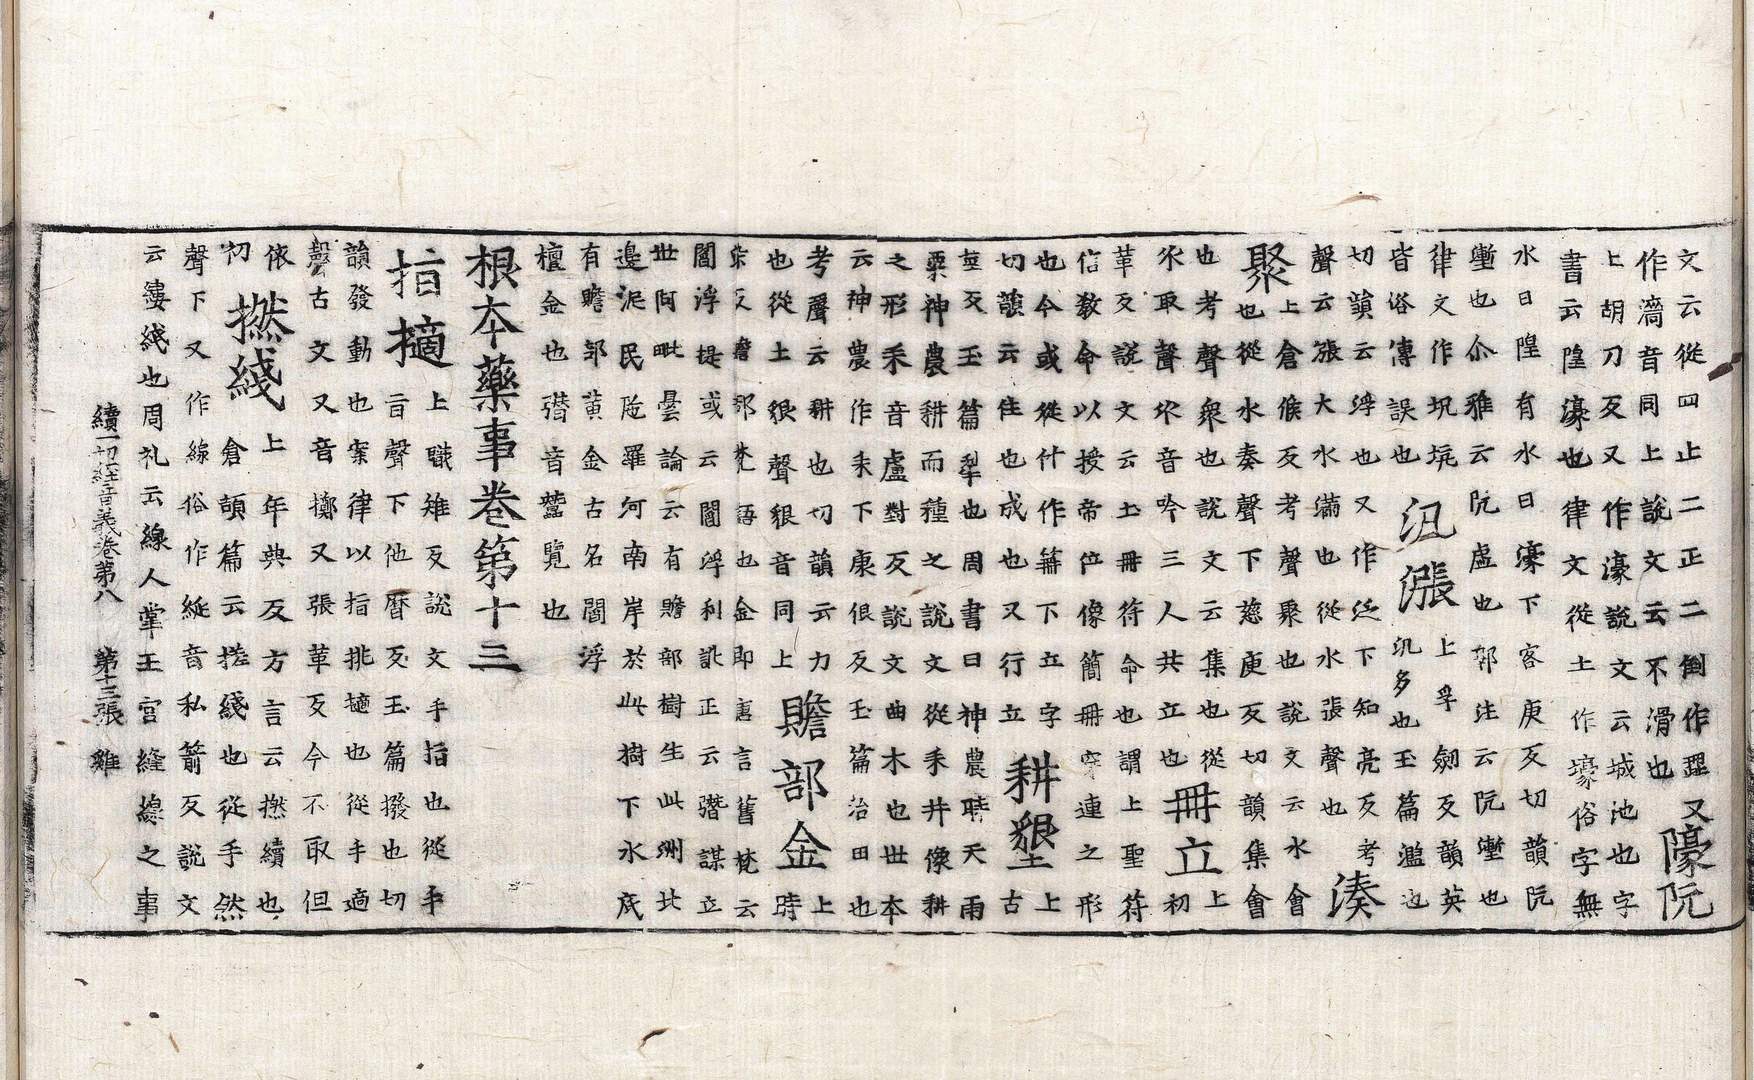 文云從四止二正二倒作𨁝又
作濇音同上說文云不滑也
壕阬
上胡刀反又作濠說文云城池也字
書云隍濠也律文從土作壕俗字無
水曰隍有水曰濠下客庚反切韻阬
壍也尒雅云阬虛也郭注云阬壍也
律文作坑坈
皆俗傳誤也
汎漲
上孚劒反韻英
汎多也玉篇濫也
切韻云浮也又作泛下知亮反考
聲云漲大水滿也從水張聲也
湊
聚
上倉候反考聲聚也說文云水會
也從水奏聲下慈庾反切韻集會
也考聲眾也說文云集也從
㐺取聲㐺音吟三人共立也
冊立
上
初
革反說文云土冊符命也謂上聖符
信敎命以授帝位像簡冊穿連之形
也今或從什作笧下立字
切韻云住也成也又行立
耕墾
上
古
莖反玉篇犁也周書曰神農時天雨
粟神農耕而種之說文從耒井像耕
之形耒音盧對反說文曲木也世本
云神農作耒下康佷反玉篇治田也
考聲云耕也切韻云力
也從土豤聲豤音同上
贍部金
上
時
染反贍部梵語也金即唐言舊梵云
閻浮提或云閻浮利訛正云潛謀立
世阿毗曇論云有贍部樹生此洲北
邊泥民陁羅河南岸於此樹下水底
有贍部黃金古名閻浮
檀金也𤃬音蠶覽也
根本藥事卷第十三
指摘
上職雉反說文手指也從手
旨聲下他曆反玉篇撥也切
韻發動也案律以指挑擿也從手適
聲古文又音擲又張革反今不取但
依
初
撚綫
上年典反方言云撚續也
倉頡篇云撚綫也從手然
聲下又作線俗作綖音私箭反說文
云縷綫也周礼云線人掌王宮縫線之事
續一切經音義卷第八　第十三張　雞